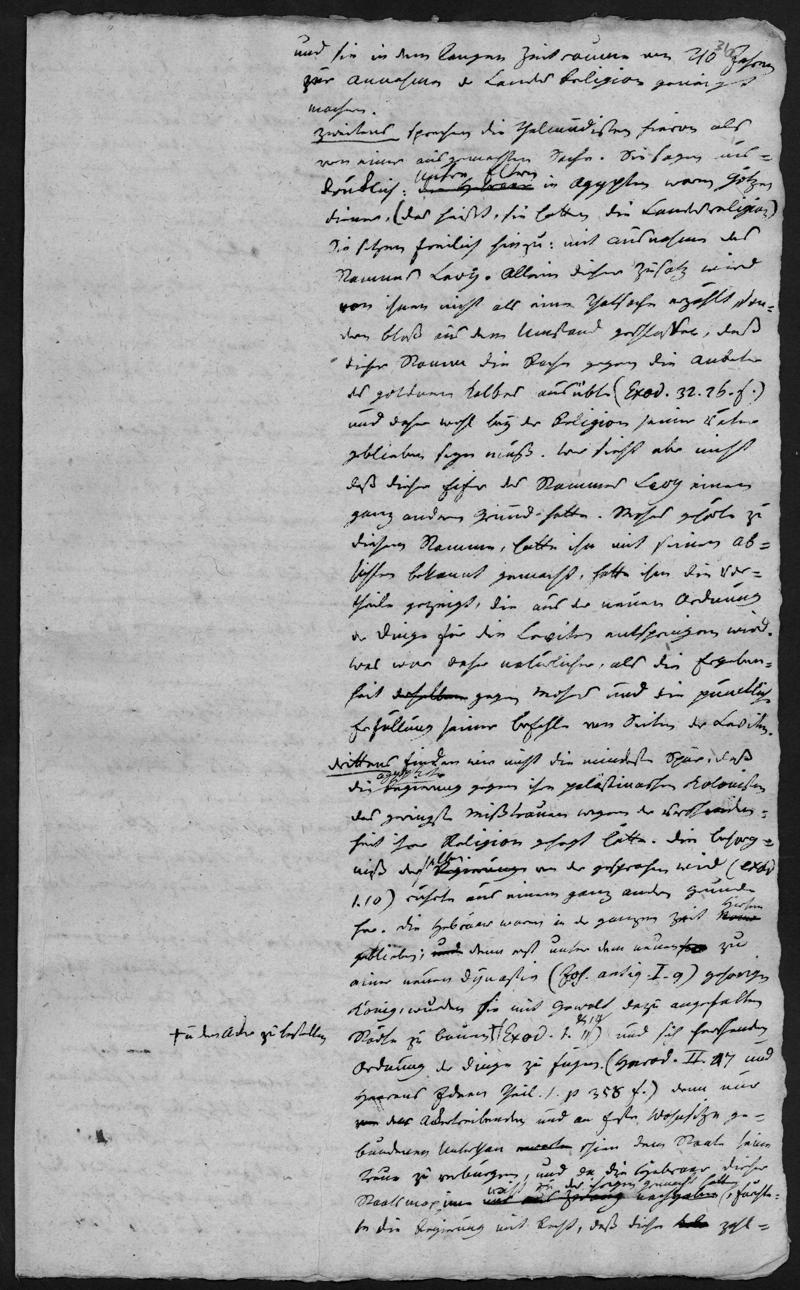 36
und sie in dem langen Zeitraume von 210 Jahren
zur Annahme der Landes Religion geneigt
machen.
zweitens sprechen die Thalmudisten hievon als
von einer ausgemachten Sache. Sie sagen aus=
drücklich: unsre Eltern in Ägypten waren Götzen
diener, (das heißt, sie hatten die Landesreligion)
Sie setzen freilich hinzu: mit Ausnahme des
Stammes Levy. Allein dieser Zusatz wird
von ihnen nicht als eine Thatsache erzählt, son=
dern bloß aus dem Umstand geschlossen, daß
dieser Stamm die Rache gegen die Anbeter
des goldenen Kalbes ausübte (Exod. 32. 26. f.)
und daher wohl bey der Religion seiner Väter
geblieben seyn muß. Wer sieht aber nicht
daß dieser Eifer des Stammes Levy einen
ganz andern Grund hatte. Moses gehörte zu
diesem Stamme, hatte ihn mit seinen Ab=
sichten bekannt gemacht, hatte ihm die Vor=
theile gezeigt, die aus der neuen Ordnung
der Dinge für die Leviten entspringen wird.
was war daher natürlicher, als die Ergeben=
heit derselben gegen Moses und die pünctliche
Erfüllung seiner Befehle von Seiten der Leviten.
drittens finden wir nicht die mindeste Spur, daß
die ägyptische Regierung gegen ihre palästinaschen Kolonisten
das geringste Mißtrauen wegen der Verschieden=
heit ihrer Religion gehegt hätte. Die Besorg=
niß derselben von der gesprochen wird (Exod
1.10) rührte aus einem ganz andern Grunde
her. Die Hebräer waren in der ganzen Zeit Hirten
geblieben; denn erst unter dem neuen zu
einer neuen Dynastie (Jos. antiq. I. 9) gehörigen
König, wurden sie mit Gewalt dazu angehalten
Städte zu bauen † (Exod. 1. 11) und sich
† u den Acker zu bestellen
Ordnung der Dinge zu fügen. (Herod. II. 47 und
Heerens Ideen Theil. 1. p 358 f.) denn nur
der Ackertreibenden und an feste Wohnsitze ge=
bundenen Unterthan schien dem Staate seine
Treue zu verbürgen, und da die Hebräer dieser
Staatsmaxime nachgaben, fürchte=
te die Regierung mit Recht, daß dieses zahl=